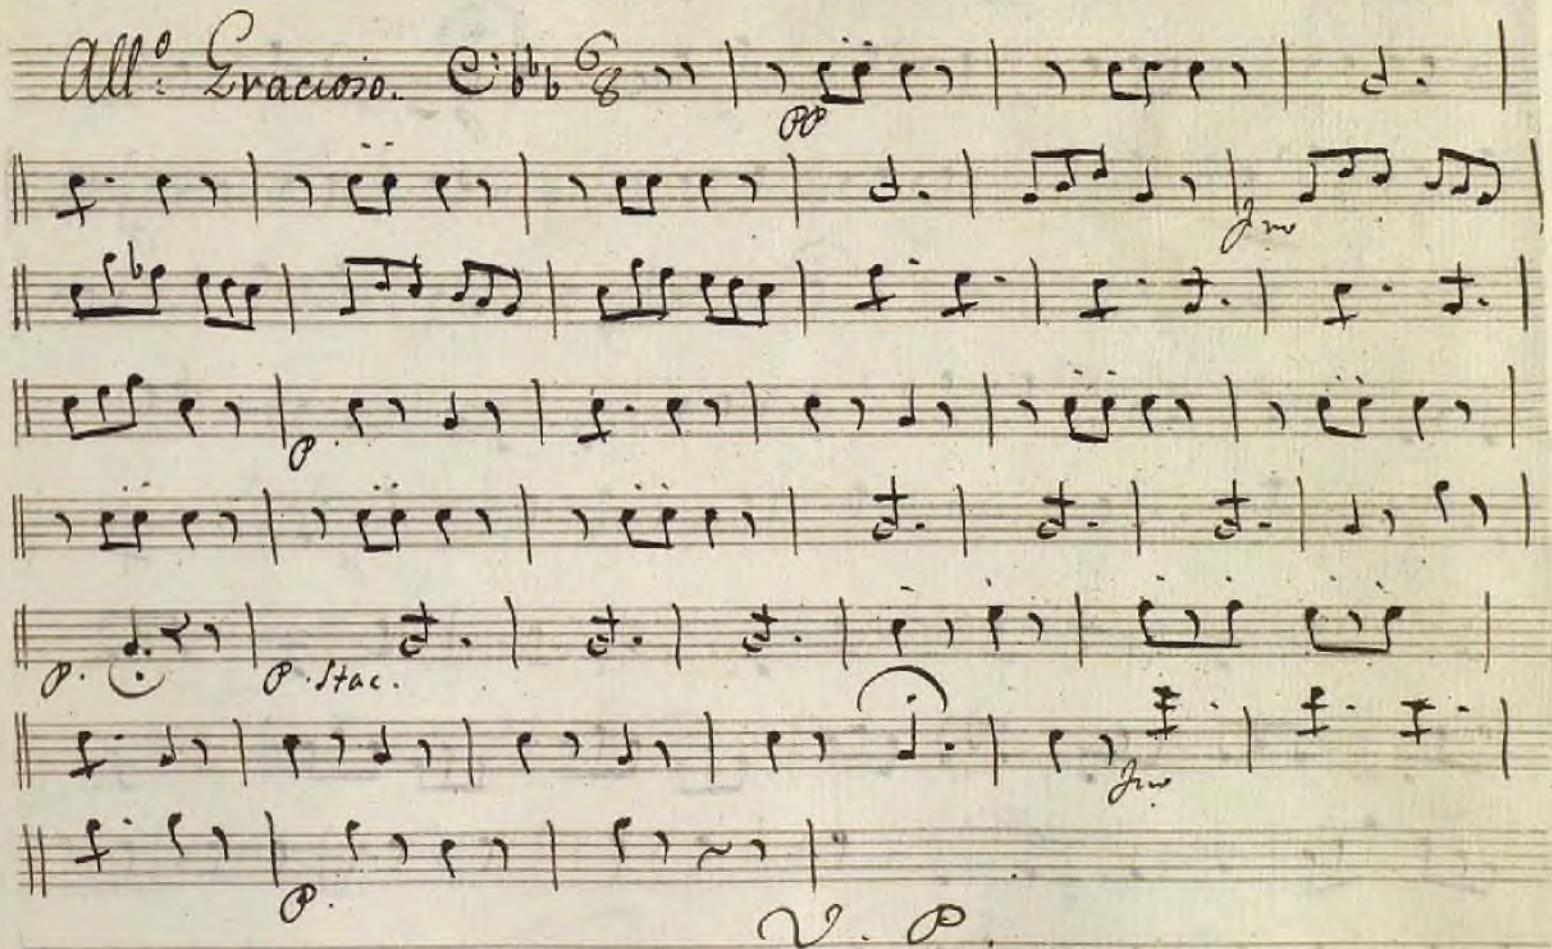 All.º Gracioso. 6/8
PP
Fmo
P.
P. P. Stac.
Fmo
P.
V. P.